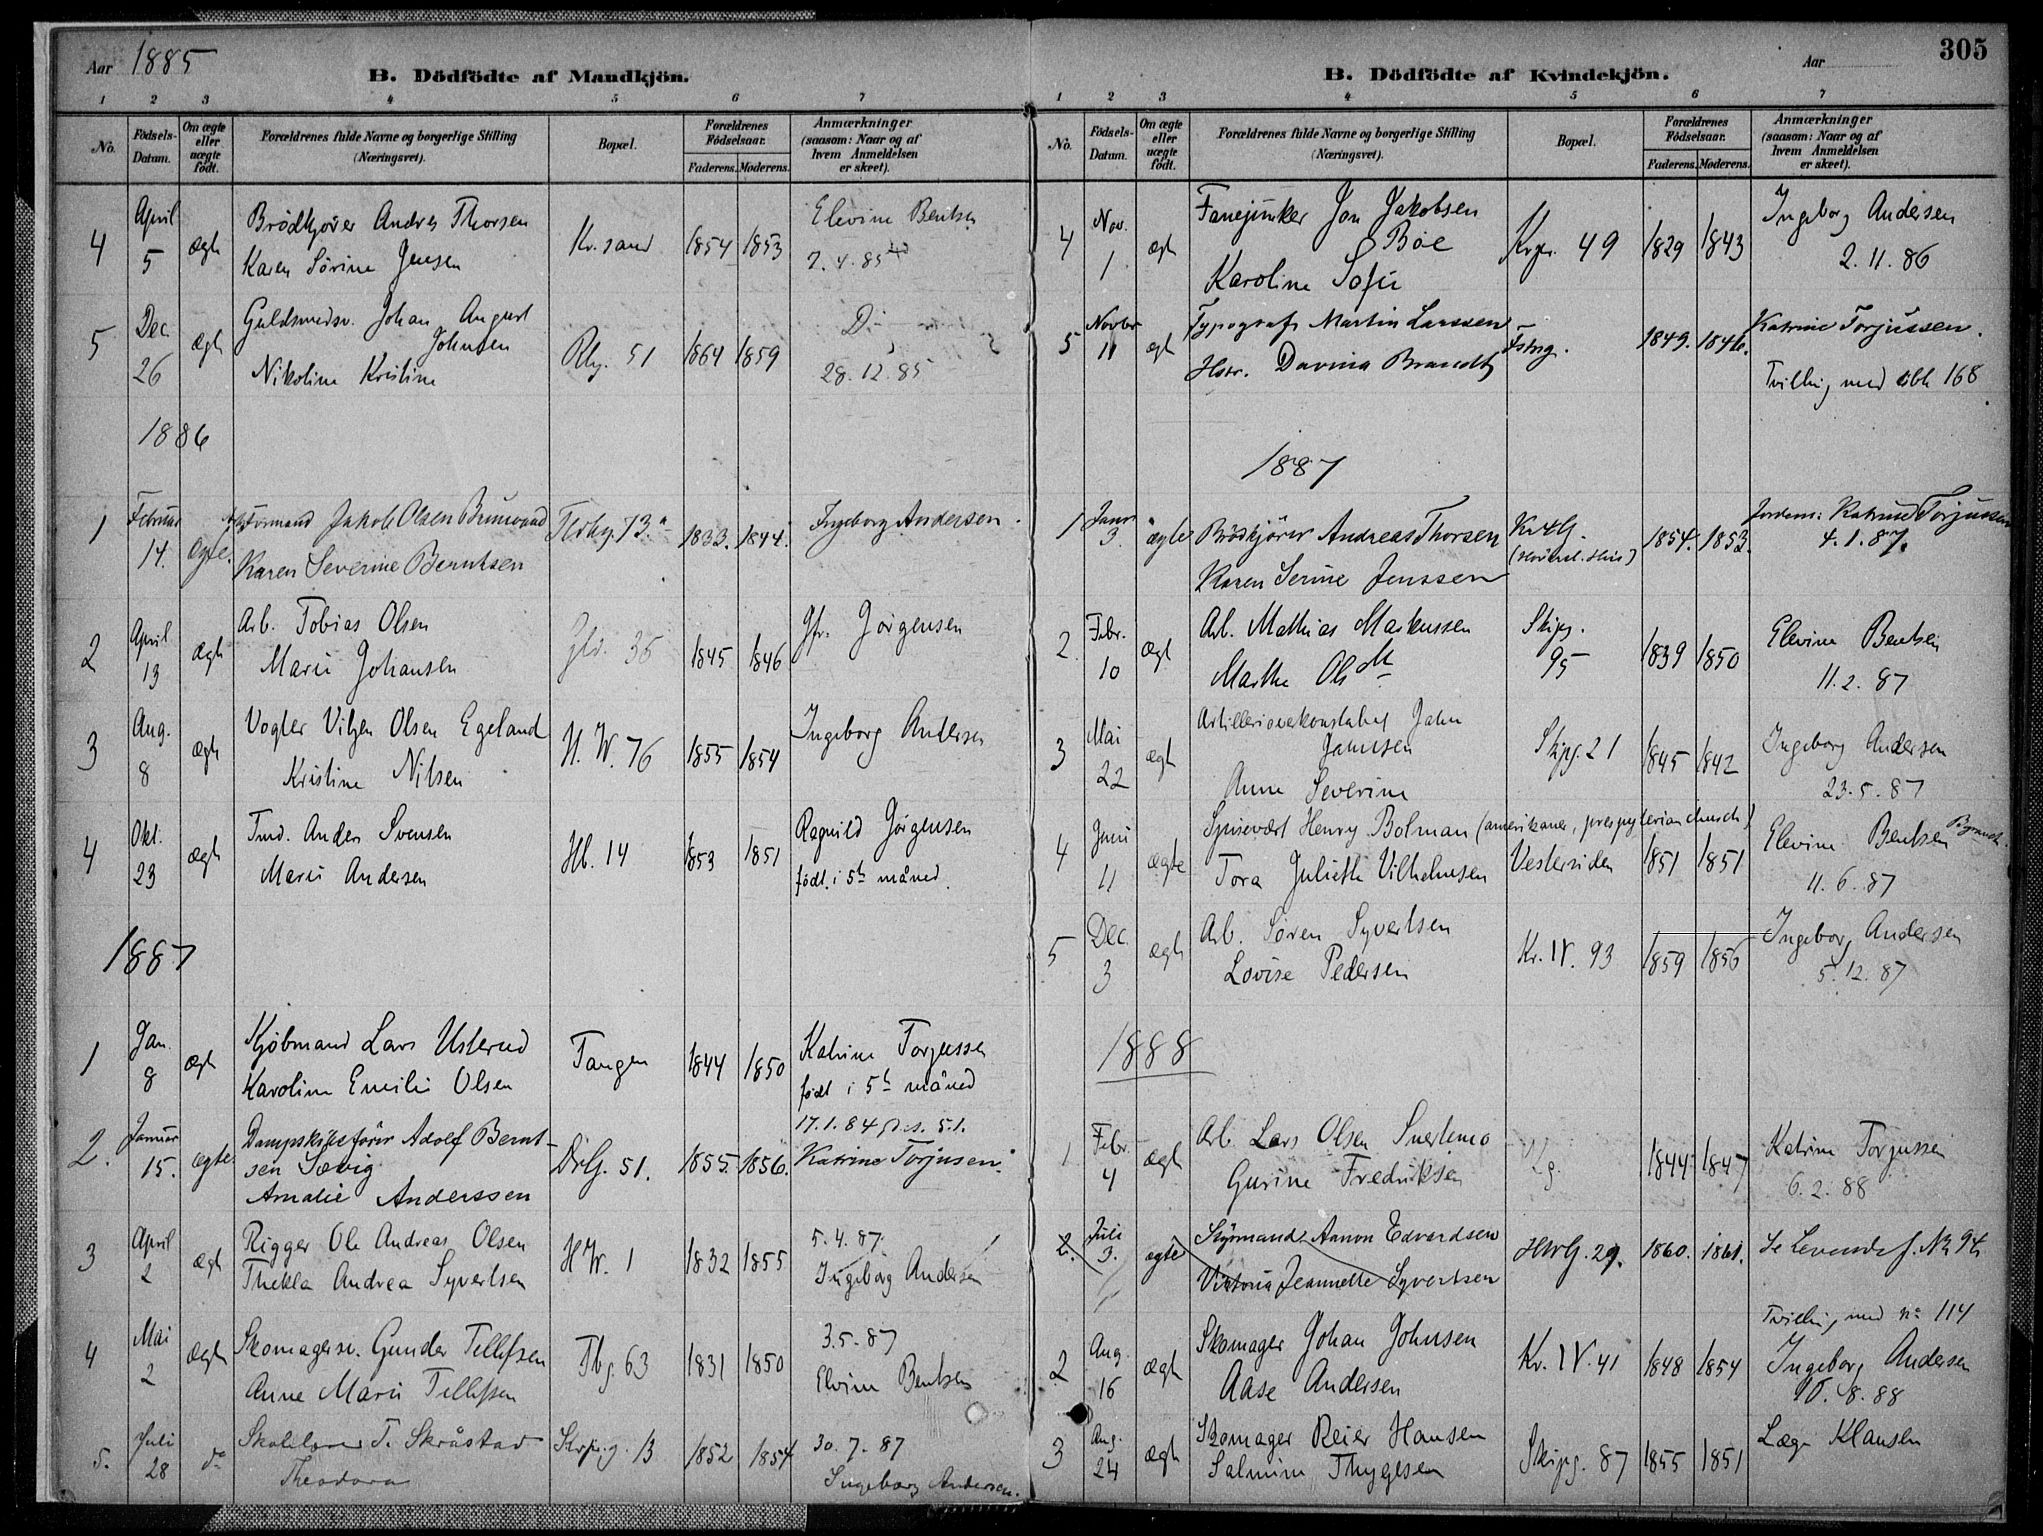 Aar 1885
B. Dödfödte af Mandkjön.
1 2 3 4 5 6 7
No.
Födsels-Datum.
Om ægte eller uægte født.
Forældrenes fulde Navne og borgerlige Stilling
(Næringsvei).
Bopæl.
Forældrenes Födselsaar.
Faderens. Moderens.
Anmærkninger
(saasom: Naar og af
hvem Anmeldelsen
er skeet).
4 April 5 ægte Brödkjører Andres Thorsen Kr.sand 1854 1853 Elevine Bentsen
Karen Sörine Jensen 7.4.85
5 Dec. 26 ægte Guldsmedsv. Johan August
Johnsen
Nikoline Kristine 51 1864 1859 Do
28.12.85
1886
1 Februar 14. ægte. Formand Jakob Olsen 73 1833. 1844. Ingeborg Andersen.
Karen Severine Berntsen
2 April 13 ægte Arb. Tobias Olsen 36 1845 1846 Jfr. Jörgensen
Marie Johansen
3 Aug. 8 ægte Vogter Olsen Egeland H.W. 76 1855 1854 Ingeborg Andersen
Kristine Nilsen
4 Okt. 23 ægte Tmd. Anders Svensen Hb. 14 1853 1851 Ragnild Jörgensen
Marie Andersen født i 5te måned.
1887
1 Jan. 8 ægte Kjöbmand Lars Usterud Tangen 1844 1850 Katrine Torjussen
Karoline Emilie Olsen født i 5te måned
17.1.84 51.
2. Januar 15. ægte Dampskibsförer Adolf Bernt-
sen Sævig DrG. 51. 1855. 1856. Katrine Torjusen.
Amalie Anderssen
3 April 2 ægte Rigger Ole Andreas Olsen H.W. 1 1832 1855 5.4.87.
Thekla Andrea Syvertsen Ingeborg Andersen
4 Mai 2 ægte Skomagersv. Gunder Tellefsen Tbg. 63 1831 1850 3.5.87
Anne Marie Tellefsen Elvine Bentsen
5. Juli 28 do Skolelærer T. Skråstad 13 1852 1854 30.7.87
Theodora Ingeborg Andersen.
305
Aar
B. Dödfödte af Kvindekjön.
1 2 3 4 5 6 7
No.
Födsels-Datum.
Om ægte eller uægte født.
Forældrenes fulde Navne og borgerlige Stilling
(Næringsvei).
Bopæl.
Forældrenes Födselsaar.
Faderens. Moderens.
Anmærkninger
(saasom: Naar og af
hvem Anmeldelsen
er skeet).
4 Nov. 1 ægt Fanejunker Jon Jakobsen
Böe 49 1829 1843 Ingeborg Andersen
Karoline Sofie 2.11.86
5 Novbr 11 ægt Typograf Martin Larssen Fstng. 1849. 1846. Katrine Torjussen.
Hstr. Davina Brandt Tvilling med 168
1887
1 Janr 3. ægte Brödkjörer Andreas Thorsen 1854. 1853. Jordem: Katrine Torjussen
Karen Serine Jenssen 4.1.87.
2. Febr. 10 ægt Arb. Mathias Markussen Skipg. 95 1839 1850 Elevine Bentsen
Marthe 11.2.87
3 Mai 22 ægte Artillerivekonstabel John
Jamsen Skipg. 21 1845 1842 Ingeborg Andersen
Anne Severine 23.5.87
4 Juni 11 ægte Spisevært Henry Bolman (amerikaner, prespyterian church)
Tora Juliette Vilhelmsen Vestersiden 1851 1851 Elevine Bentsen
11.6.87
5 Dec. 3 ægte Arb. Sören Syvertsen Kr. IV. 93 1859 1856 Ingeborg Andersen
Lovise Pedersen 5.12.87
1888
1 Febr. 4 ægte Arb. Lars Olsen Snertemo 1844 1847 Katrine Torjussen
Gurine Fredriksen 6.2.88
2. Juli 3. ægte Styrmand Aanon Edvardsen 29. 1860. 1861. Se Levendef. No 94
Viktoria Jeannette Syvertsen
Tvilling med no 114
2 Aug. 16 ægte Skomager Johan Johnsen Kr. IV. 41 1848 1854 Ingeborg Andersen
Aase Andersen 8.88
3 Aug. 24 ægte Skomager Reier Hansen Skipg. 87 1855 1851 Læge Klausen
Salmine Thygesen